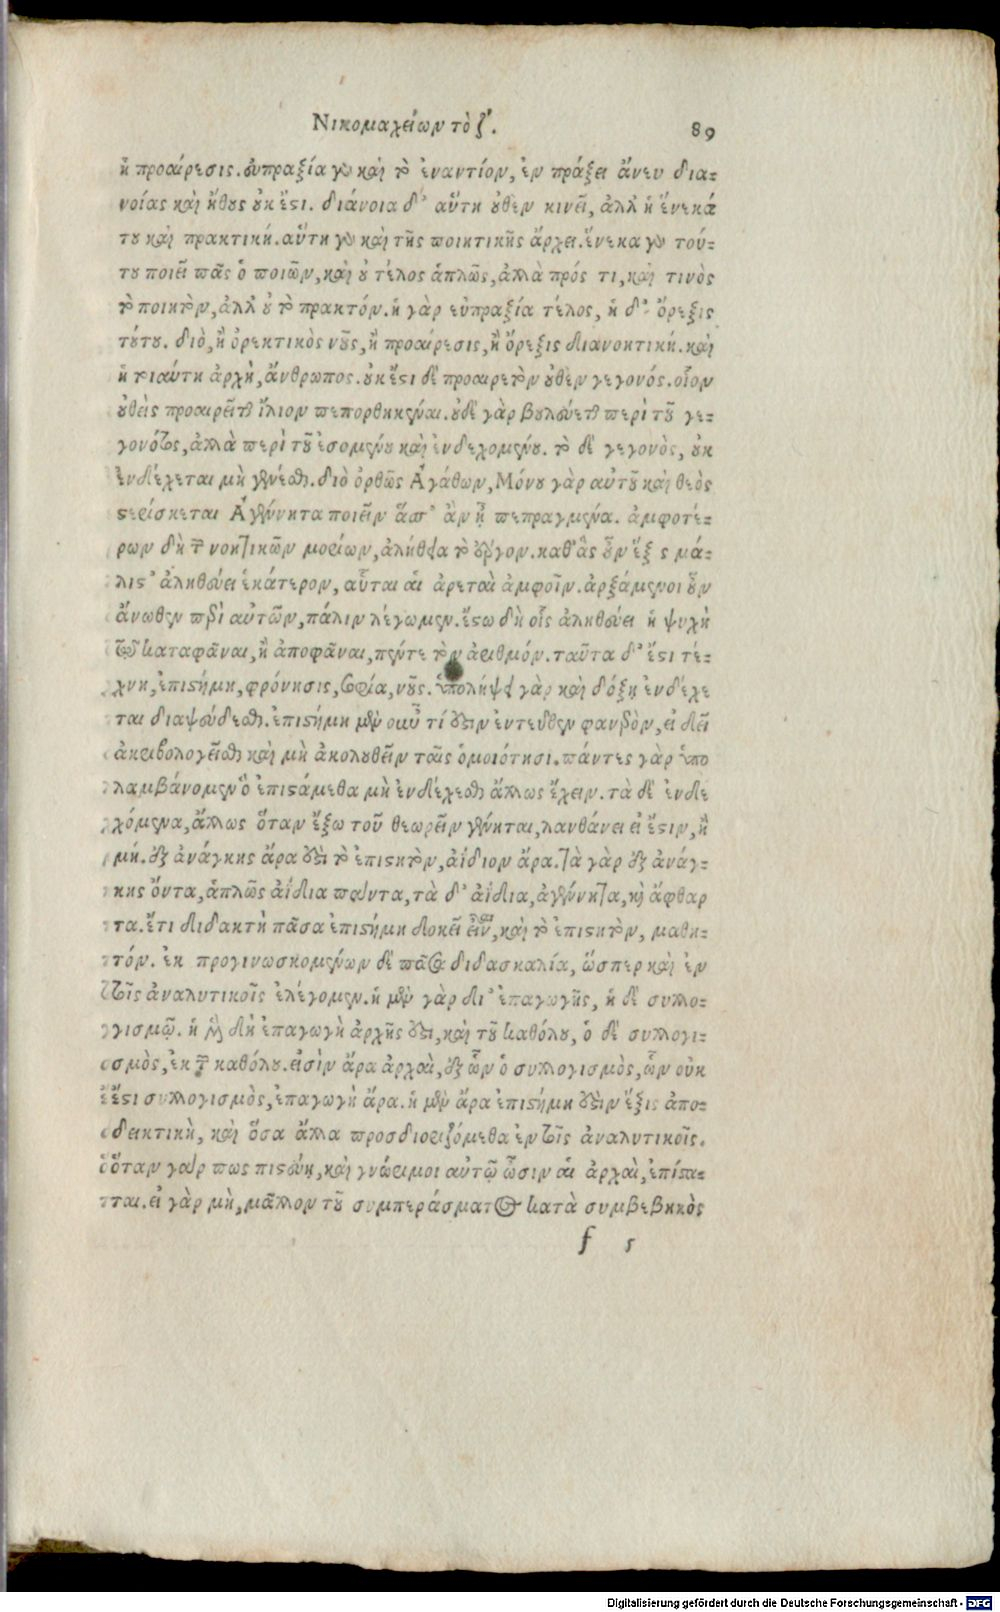 Νικομαχείων τὸ ζ΄. 89
ἡ προαίρεσις. εὐπραξία γὰρ καὶ τὸ ἐναντίον, ἐν πράξει ἄνευ δια-
νοίας καὶ ἤθους οὐκ ἔστι. διάνοια δ' αὕτη οὐθὲν κινεῖ, ἀλλ' ἡ ἕνεκά
του καὶ πρακτική. αὕτη γὰρ καὶ τῆς ποιητικῆς ἄρχει. ἕνεκα γὰρ τού-
του ποιεῖ πᾶς ὁ ποιῶν, καὶ οὐ τέλος ἁπλῶς, ἀλλὰ πρός τι, καὶ τινὸς
τὸ ποιητὸν, ἀλλ' οὐ τὸ πρακτόν. ἡ γὰρ εὐπραξία τέλος, ἡ δ' ὄρεξις
τούτου. διὸ, ἢ ὀρεκτικὸς νοῦς, ἡ προαίρεσις, ἢ ὄρεξις διανοητική. καὶ
ἡ τοιαύτη ἀρχὴ, ἄνθρωπος. οὐκ ἔστι δὲ προαιρετὸν οὐθὲν γεγονός. οἷον
οὐθεὶς προαιρεῖται ἴλιον πεπορθηκέναι. οὐδὲ γὰρ βουλεύεται περὶ τοῦ γε-
γονότος, ἀλλὰ περὶ τοῦ ἐσομένου καὶ ἐνδεχομένου. τὸ δὲ γεγονὸς, οὐκ
ἐνδέχεται μὴ γενέσθαι. διὸ ὀρθῶς Ἀγάθων, Μόνου γὰρ αὐτοῦ καὶ θεὸς
στερίσκεται Ἀγέννητα ποιεῖν ἅσσ' ἂν ᾖ πεπραγμένα. ἀμφοτέ-
ρων δὴ τῶν νοητικῶν μορίων, ἀλήθεια τὸ ἔργον. καθ' ἃς οὖν ἕξεις μά-
λιστ' ἀληθεύει ἑκάτερον, αὗται αἱ ἀρεταὶ ἀμφοῖν. ἀρξάμενοι οὖν
ἄνωθεν περὶ αὐτῶν, πάλιν λέγωμεν. ἔστω δὴ οἷς ἀληθεύει ἡ ψυχὴ
τῷ καταφᾶναι, ἢ ἀποφᾶναι, πέντε τὸν ἀριθμόν. ταῦτα δ' ἔστι τέ-
χνη, ἐπιστήμη, φρόνησις, σοφία, νοῦς. ὑπολήψει γὰρ καὶ δόξῃ ἐνδέχε
ται διαψεύδεσθαι. ἐπιστήμη μὲν οὖν τί ἐστιν ἐντεῦθεν φανερὸν, εἰ δεῖ
ἀκριβολογεῖσθαι καὶ μὴ ἀκολουθεῖν ταῖς ὁμοιότησι. πάντες γὰρ ὑπο
λαμβάνομεν ὃ ἐπιστάμεθα μὴ ἐνδέχεσθαι ἄλλως ἔχειν. τὰ δὲ ἐνδε
χόμενα, ἄλλως ὅταν ἔξω τοῦ θεωρεῖν γένηται, λανθάνει εἰ ἔστιν, ἢ
μή. ἐξ ἀνάγκης ἄρα ἐστὶ τὸ ἐπιστητὸν, ἀΐδιον ἄρα. τὰ γὰρ ἐξ ἀνάγ-
κης ὄντα, ἁπλῶς ἀΐδια πάντα, τὰ δ' ἀΐδια, ἀγένητα, καὶ ἄφθαρ
τα. ἔτι διδακτὴ πᾶσα ἐπιστήμη δοκεῖ εἶναι, καὶ τὸ ἐπιστητὸν, μαθη-
τόν. ἐκ προγινωσκομένων δὲ πᾶσα διδασκαλία, ὥσπερ καὶ ἐν
τοῖς ἀναλυτικοῖς ἐλέγομεν. ἡ μὲν γὰρ δι' ἐπαγωγῆς, ἡ δὲ συλλο-
γισμῷ. ἡ μὲν δὴ ἐπαγωγὴ ἀρχῆς ἐστι, καὶ τοῦ καθόλου, ὁ δὲ συλλογι-
σμὸς, ἐκ τῶν καθόλου. εἰσὶν ἄρα ἀρχαὶ, ἐξ ὧν ὁ συλλογισμὸς, ὧν οὐκ
ἔστι συλλογισμὸς, ἐπαγωγὴ ἄρα. ἡ μὲν ἄρα ἐπιστήμη ἐστὶν ἕξις ἀπο-
δεικτικὴ, καὶ ὅσα ἄλλα προσδιοριζόμεθα ἐν τοῖς ἀναλυτικοῖς.
ὅταν γάρ πως πιστεύῃ, καὶ γνώριμοι αὐτῷ ὦσιν αἱ ἀρχαὶ, ἐπίστα-
ται. εἰ γὰρ μὴ, μᾶλλον τοῦ συμπεράσματος κατὰ συμβεβηκὸς
f 5
Digitalisierung gefördert durch die Deutsche Forschungsgemeinschaft - DFG